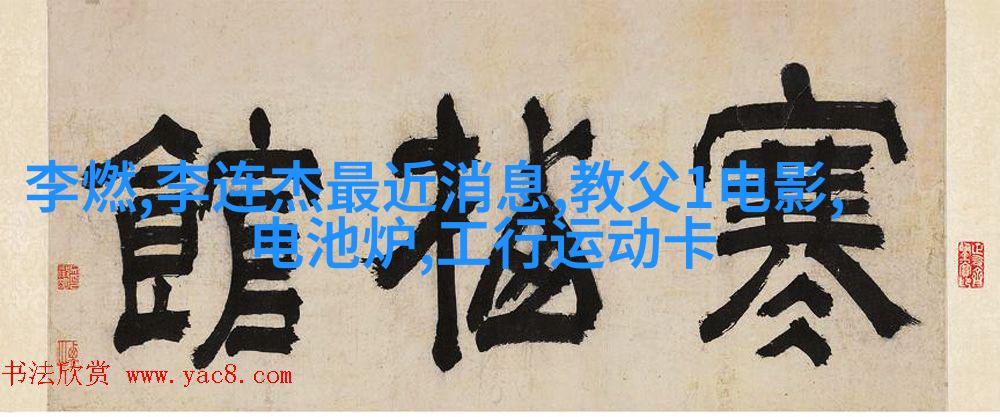 寒 館
李燃,李连杰最近消息,教父1电影,
电池炉,工行运动卡
书法欣赏 www.yac8.com